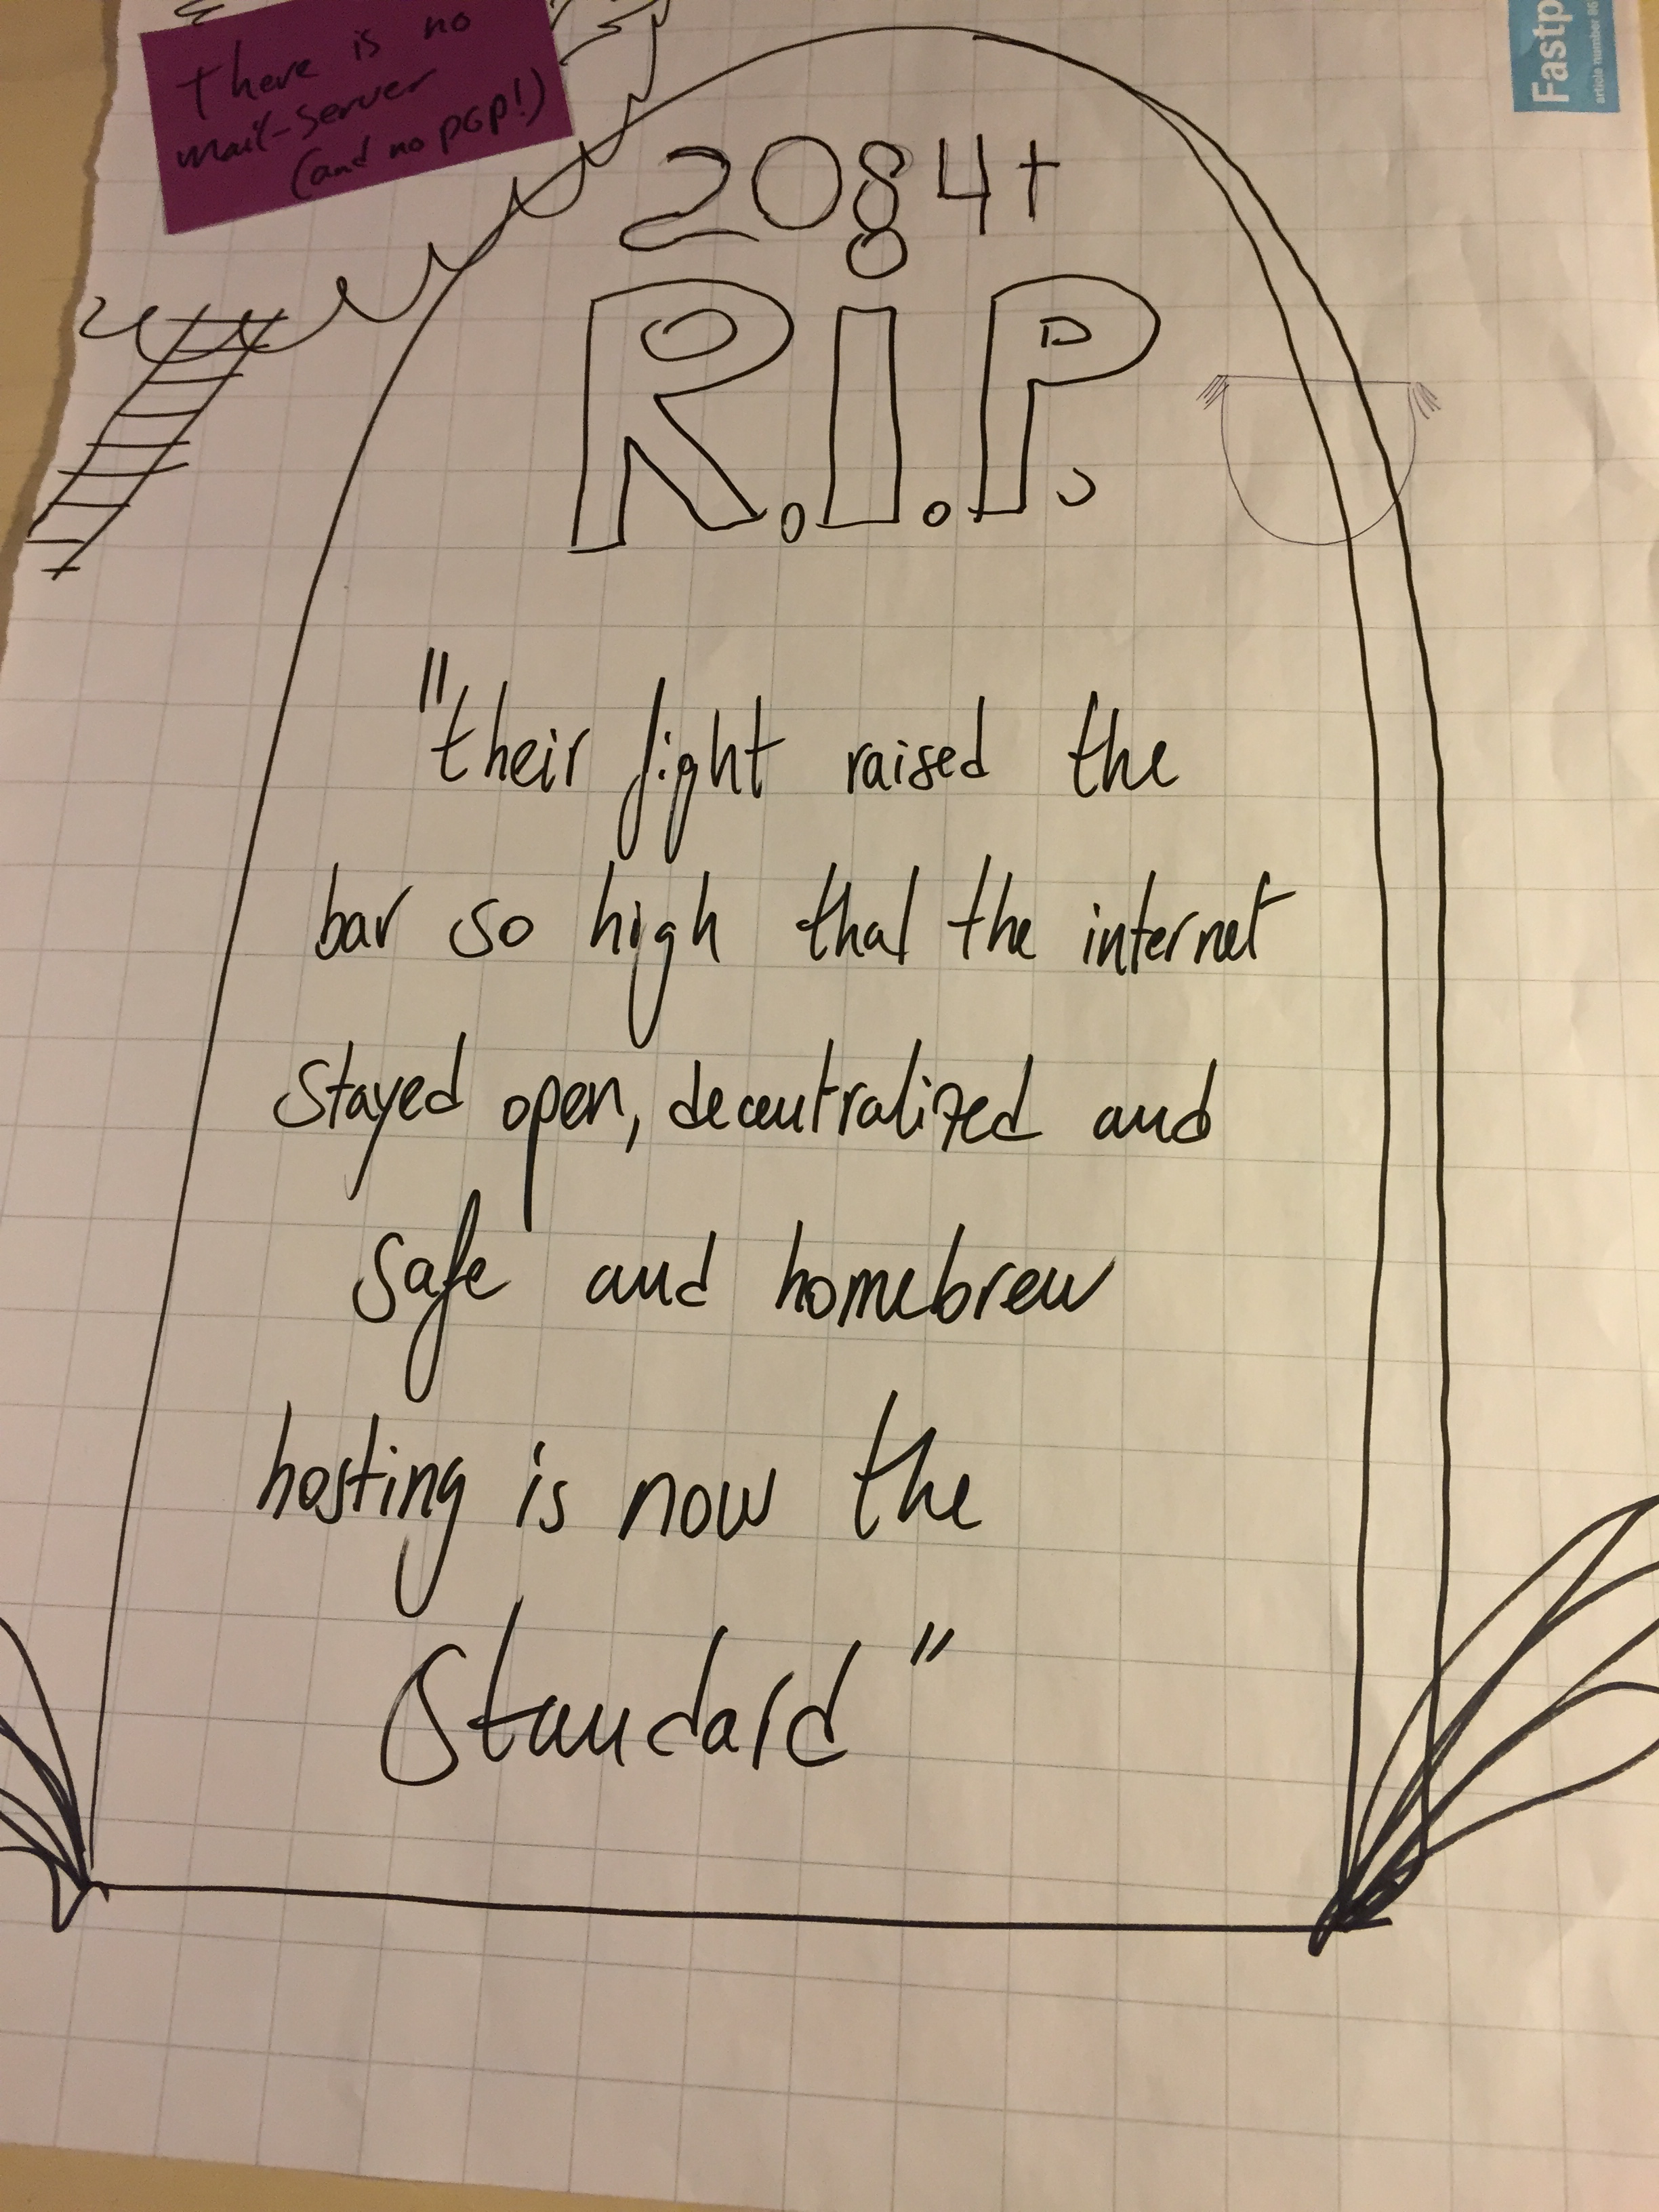 there is no
mail-server
(and no pgp!)
Fastp
article number 86
2084+
R.I.P.
"their fight raised the
bar so high that the internet
stayed open, decentralized and
safe and homebrew
hosting is now the
standard"